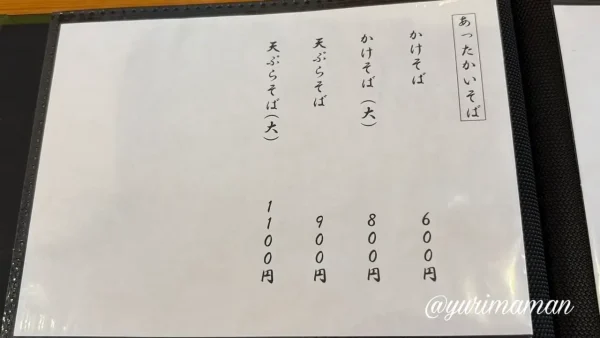 あったかいそば
かけそば 600円
かけそば(大) 800円
天ぷらそば 900円
天ぷらそば(大) 1100円
@yurimaman